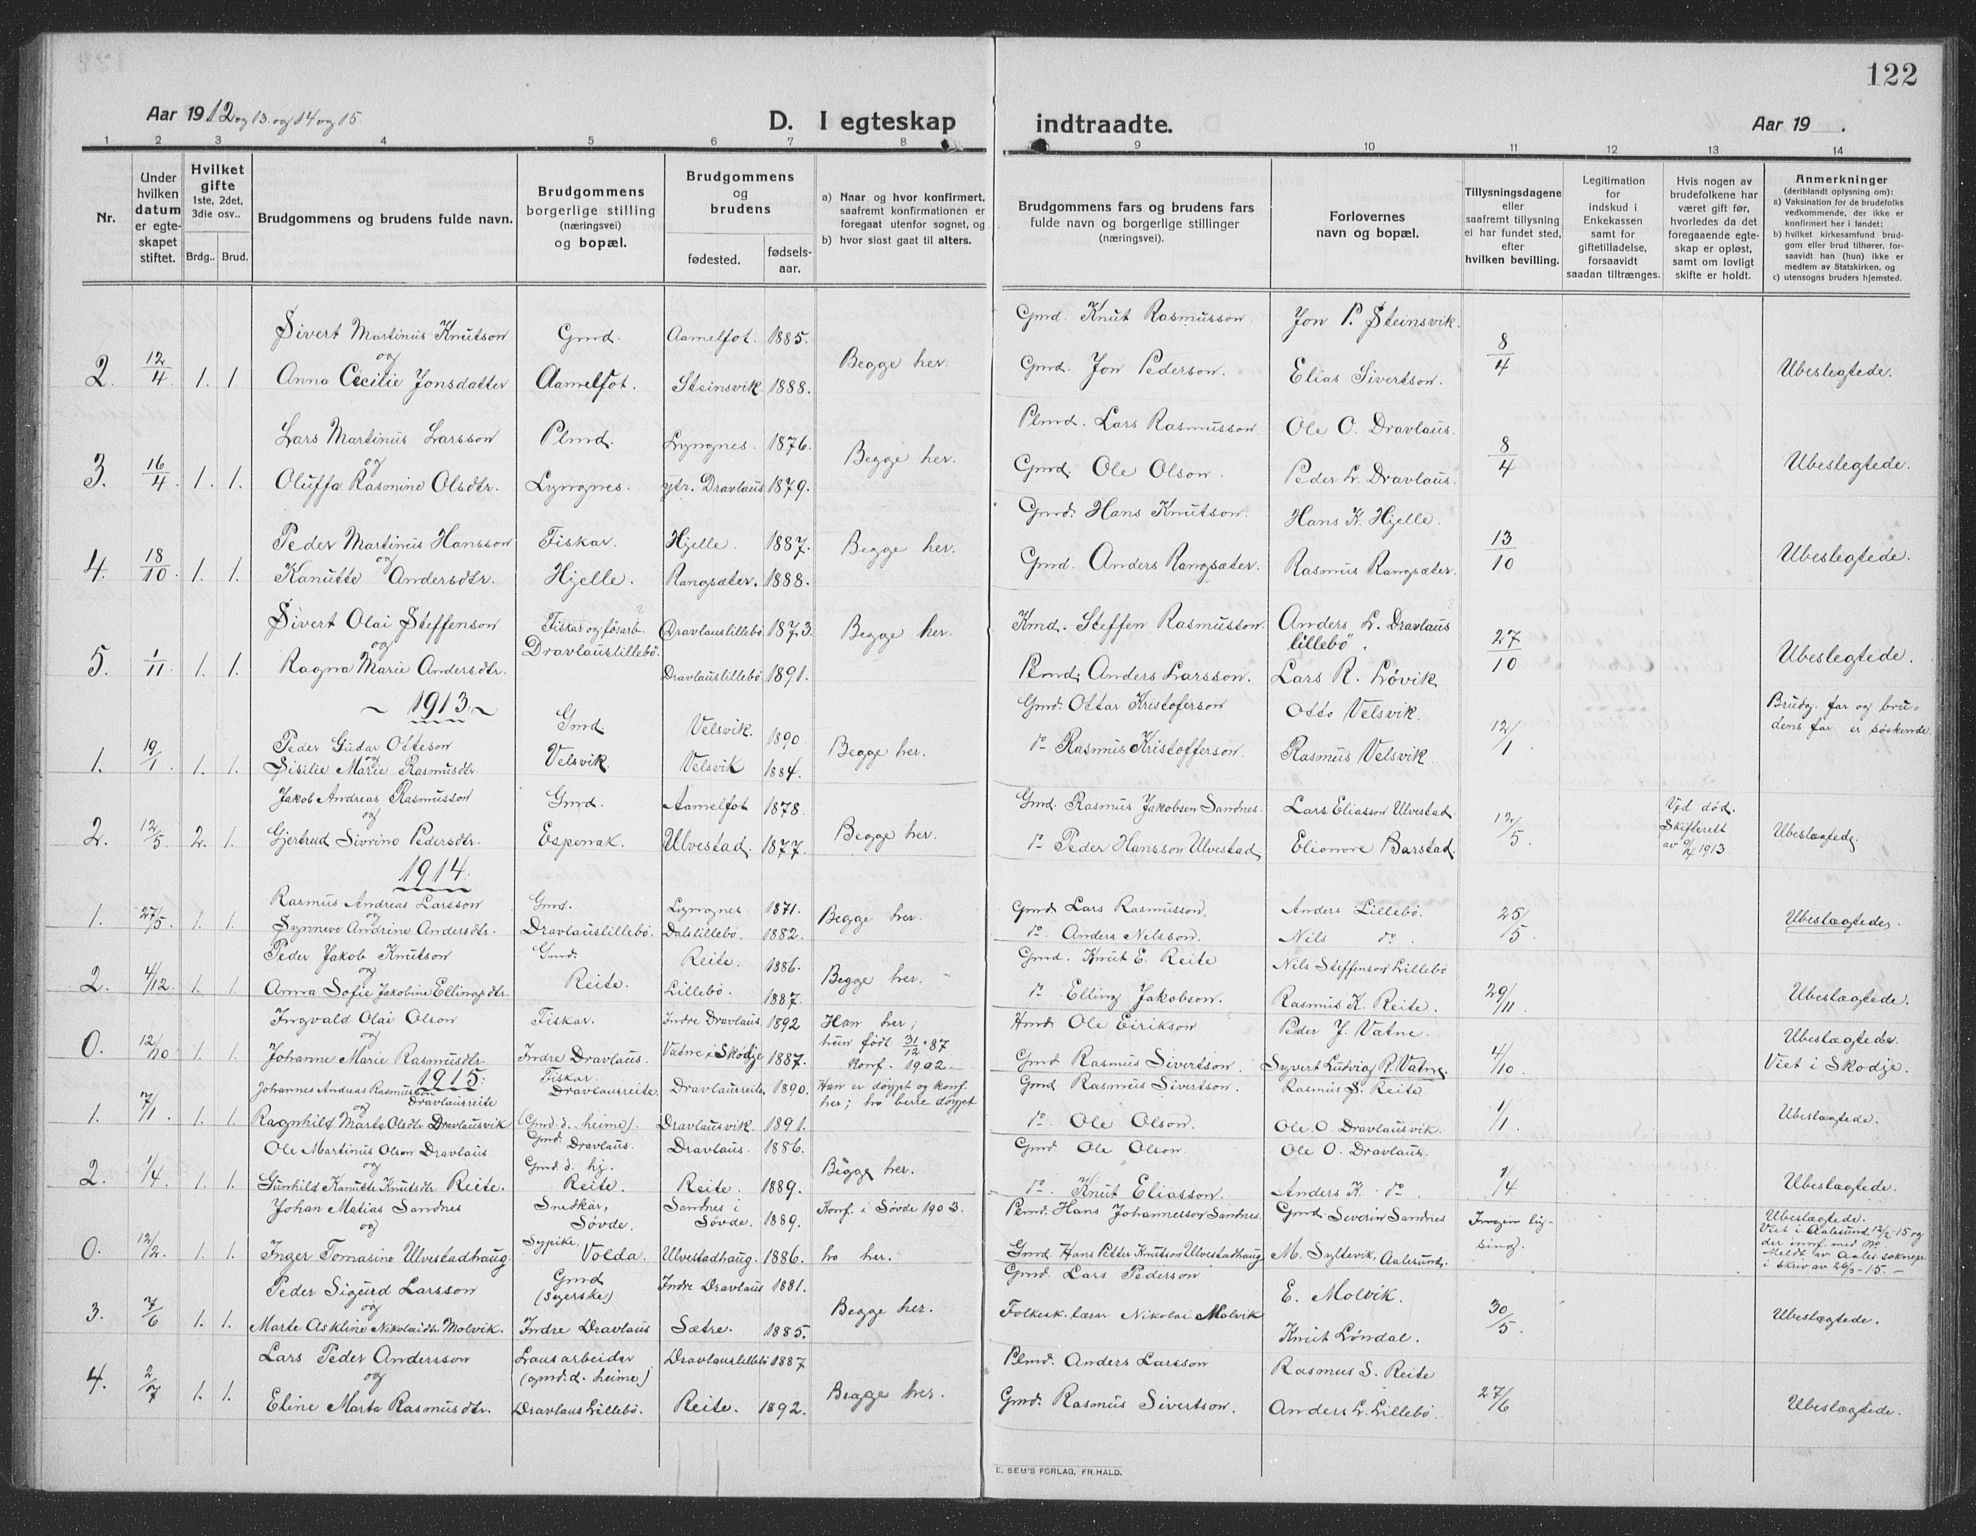 122
Aar 1912 og 13. og 14 og 15.
D. I egteskap indtraadte.
Aar 19 .
1 2 3 4 5 6 7 8 9 10 11 12 13 14
Nr.
Under hvilken datum er egteskapet stiftet.
Hvilket gifte 1ste, 2det, 3die osv..
Brdg.. Brud.
Brudgommens og brudens fulde navn.
Brudgommens borgerlige stilling (næringsvei) og bopæl.
Brudgommens og brudens
fødested.
fødselsaar.
a) Naar og hvor konfirmert, saafremt konfirmationen er foregaat utenfor sognet, og
b) hvor sisst gaat til alters.
Brudgommens fars og brudens fars fulde navn og borgerlige stillinger (næringsvei).
Forlovernes navn og bopæl.
Tillysningsdagene eller saafremt tillysning ei har fundet sted, efter hvilken bevilling.
Legitimation for indskud i Enkekassen samt for giftetilladelse, forsaavidt saadan tiltrænges.
Hvis nogen av brudefolkene har været gift før, hvorledes da det foregaaende egteskap er opløst, samt om lovligt skifte er holdt.
Anmerkninger (deriblandt oplysning om):
a) Vaksination for de brudefolks vedkommende, der ikke er konfirmert her i landet;
b) hvilket kirkesamfund brudgom eller brud tilhører, forsaavidt han (hun) ikke er medlem av Statskirken, og
c) utensogns bruders hjemsted.
Sivert Martinus Knutson Gmd. Aamelfot. 1885. Gmd. Knut Rasmusson Jon P. Steinsvik.
2. 12/4 1. 1 og Begge her. 8/4
Anna Cecilie Jonsdatter Aamelfot. Steinsvik 1888. Gmd. Jon Pederson. Elias Sivertson. Ubeslegtede.
Lars Martinus Larsson Plmd. Lyngnes. 1876. Plmd. Lars Rasmusson Ole O. Dravlaus.
3. 16/4 1. 1. og Begge her. 8/4
Oluffa Rasmine Olsdtr. Lyngnes. ytr. Dravlaus 1879. Gmd. Ole Olson. Peder L. Dravlaus. Ubeslegtede.
Peder Martinus Hansson Fiskar. Hjelle. 1887. Gmd. Hans Knutson. Hans K. Hjelle.
4. 18/10 1. 1. og Begge her. 13/10
Kanutte Andersdtr. Hjelle. Rangsæter. 1888. Gmd. Anders Rangsæter. Rasmus Rangsæter. Ubeslegtede.
Sivert Olai Steffenson Fiskar og løsarb. Dravlauslillebø 1873. Kmd. Steffen Rasmusson Anders L. Dravlaus lillebø.
5. 1/11 1. 1. og Dravlauslillebø. Begge her. 27/10
Ragna Marie Andersdtr. Dravlauslillebø 1891. Anders Larsson. Lars R. Løvik Ubeslegtede.
~ 1913. ~
Peder Gudar Otteson Gmd Velsvik. 1890. Gmd. Ottar Kristoferson Otto Velsvik. Brudg. far og brudens far er søskende.
1. 19/1 1. 1. og Begge her. 12/1
Sisilie Marie Rasmusdtr. Velsvik Velsvik 1884. do Rasmus Kristofferson. Rasmus Velsvik
Jakob Andreas Rasmusson Gmd. Aamelfot 1878. Gmd. Rasmus Jakobsen Sandnes. Lars Eliasson Ulvestad Ved død. Skifterett av 1913
2. 12/5 2. 1. og Begge her. 12/5
Gjertrud Sivrine Pedersdtr. Espenak. Ulvestad. 1877. do Peder Hansson Ulvestad Elionore Barstad. Ubeslægtede.
1914.
Rasmus Andreas Larsson Gmd. Lyngnes 1871. Gmd Lars Rasmusson. Anders Lillebø.
1. 27/5 1. 1. og Begge her. 25/5 Ubeslægtede.
Synneve Andrine Andersdtr. Dravlauslillebø. Dalslillebø. 1882. do. Anders Nilsson. Nils do.
Peder Jakob Knutson Gmd. Reite. 1886. Gmd. Knut E. Reite Nils Steffenson Lillebø
2. 4/12 1. 1. og Reite. Begge her. 29/11
Anna Sofie Jakobine Ellingsdtr. Lillebø. 1887. do Elling Jakobson. Rasmus K. Reite. Ubeslægtede.
Ingvald Olai Olson Fiskar. Indre Dravlaus 1892 Han her; Hmd. Ole Eirikson Peder J. Vatne. Ubeslægtede.
0. 12/10 1. 1. og hun født 31/12 87 4/10
Johanne Marie Rasmusdtr. Indre Dravlaus. Vatne i Skodje 1887. Konf. 1902. Gmd Rasmus Sivertson. Syvert Ludvig R. Vatne. Viet i Skodje.
1915.
Johannes Andreas Rasmusson Dravlausreite Fiskar. Dravlausreite. Dravlausreite. 1890. Han er døypt og konf. her; ho berre døypt Gmd Rasmus Sivertson. Rasmus S. Reite
1. 7/1 1. 1. og 1/1
Ragnhild Marta Olsdtr Dravlausvik (Gmd. d. heime). Dravlausvik. 1891. do. Ole Olson. Ole O. Dravlausvik. Ubeslægtede.
Ole Martinus Olson Dravlaus Gmd Dravlaus. Dravlaus. 1886. Gmd Ole Olson Ole O. Dravlaus.
2. 1/4 1. 1. og Gmd. d. hj. Begge her. 1/4
Gunhild Kanutte Knutsdtr Reite. Reite. Reite. 1889. do. Knut Eliasson Anders K. do Ubeslægtede.
Johan Matias Sandnes Snedkar, Søvde. Sandnes i Søvde. 1889. Konf. i Søvde 1903. Plmd. Hans Johannesson Sandnes. Gmd Severin Sandnes Ingen lysing. Ubeslægtede. Viet i Aalesund 12/2 15 og
0. 12/2 1. 1. og
Inger Tomasine Ulvestadhaug. Sypike, Volda. Ulvestadhaug. 1886. ho her. Gmd Hans Petter Knutson Ulvestadhaug M. Syltevik, Aalesund. Meldt av Aales. soknepr. i skriv av 26/3-15.
Peder Sigurd Larsson Gmd (Sverske) Indre Dravlaus 1881. Gmd. Lars Pederson E. Molvik.
3. 7/6 1. 1. og Begge her. 30/5
Marte Askline Nikolaidtr Molvik. Indre Dravlaus Sætre. 1885. Folkesk. lærar Nikolai Molvik Knut Løndal. Ubeslægtede.
Lars Peder Andersson Lausarbeidar Dravlauslillebø 1887 Plmd. Anders Larsson Rasmus S. Reite
4. 2/7 1. 1. og (gmd. d. heime) Begge her. 27/6
Eline Marta Rasmusdtr. Dravlaus Lillebø. Reite. 1892. Gmd. Rasmus Sivertson. Anders L. Lillebø. Ubeslægtede.
E. SEM'S FORLAG, FR.HALD.